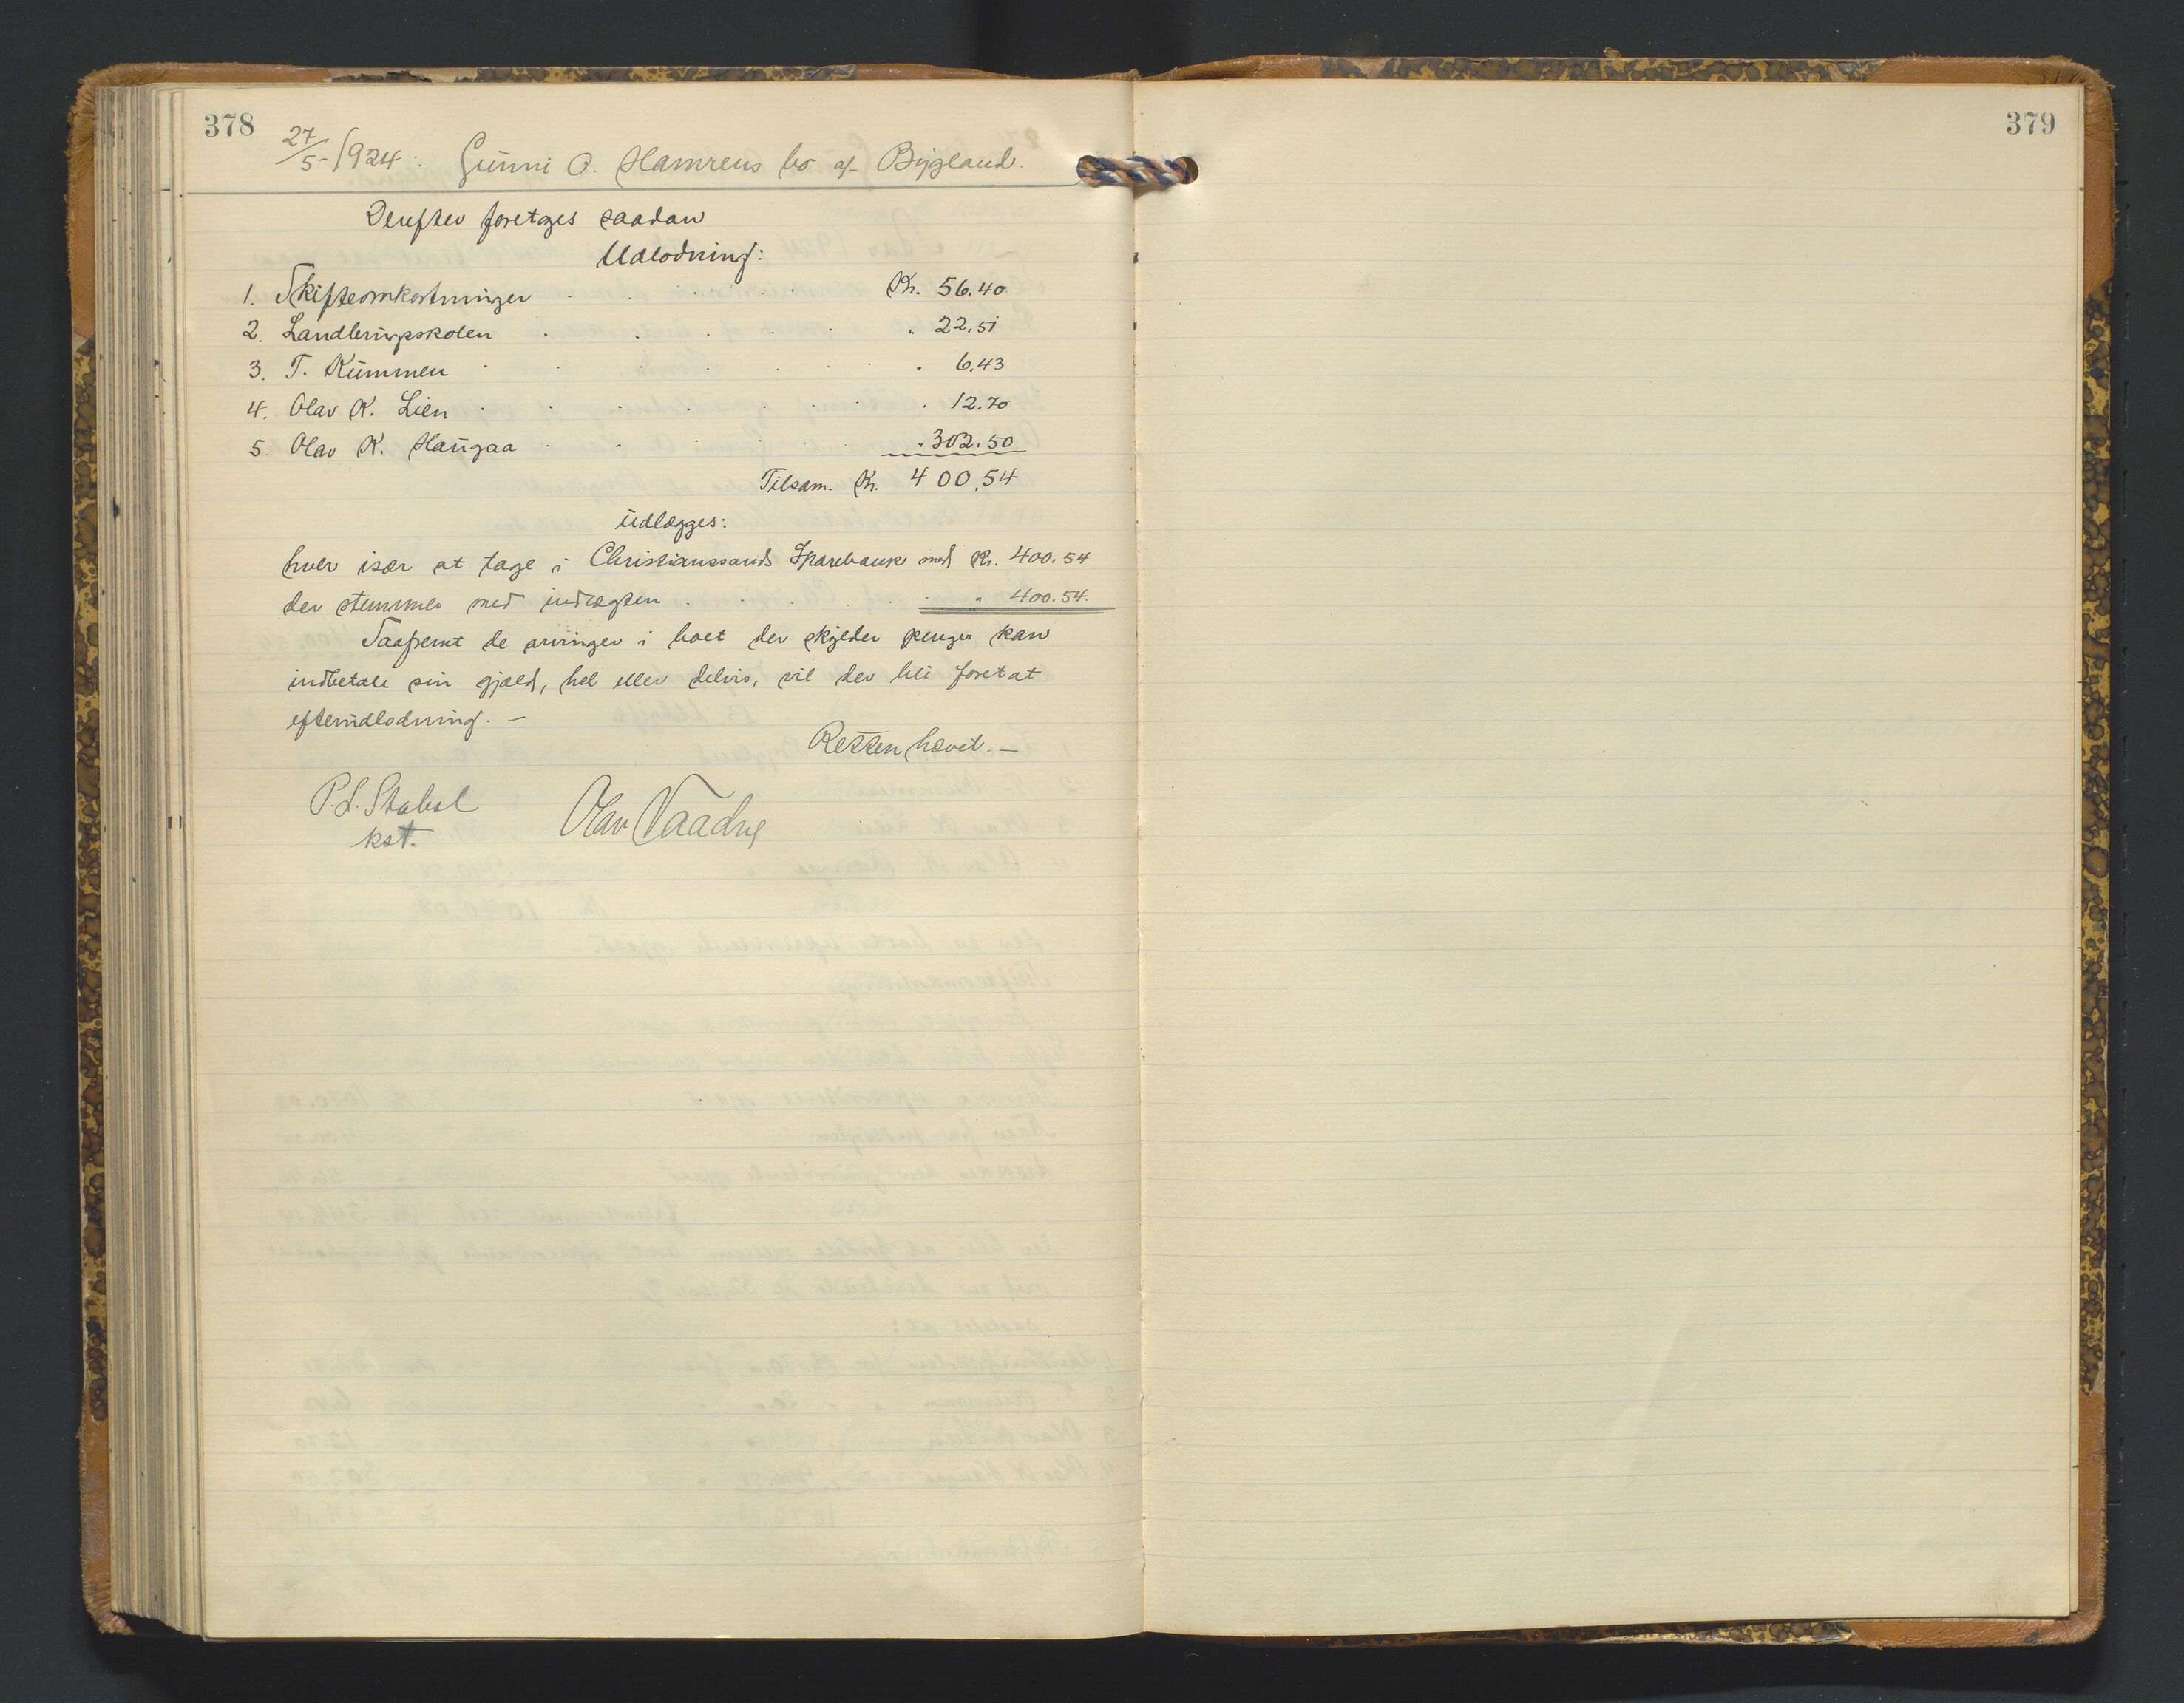 378
27/5-1924: Gunni O. Hamrens bo af Bygland.
Derefter foretages saadan
Udlodning:
1. Skifteomkostninger . . . . Kr. 56.40
2. Landbrugsskolen . . . . " 22.51
3. T. Kummen . . . . . " 6.43
4. Olav K. Lien . . . . . . " 12.70
5. Olav K. Haugaa . . . . . " 302.50
Tilsam. Kr. 400.54
udlægges:
hver især at tage i Christianssands Sparebank med Kr. 400.54
der stemmer med indtægten . . . . " 400.54.
Saafremt de arvinger i boet der skylder penger kan
indbetale sin gjæld, hel eller delvis, vil der bli foretat
efterudlodning. —
Retten hævet. —
P. L. Stabel
kst.
Olav Vaadne
379